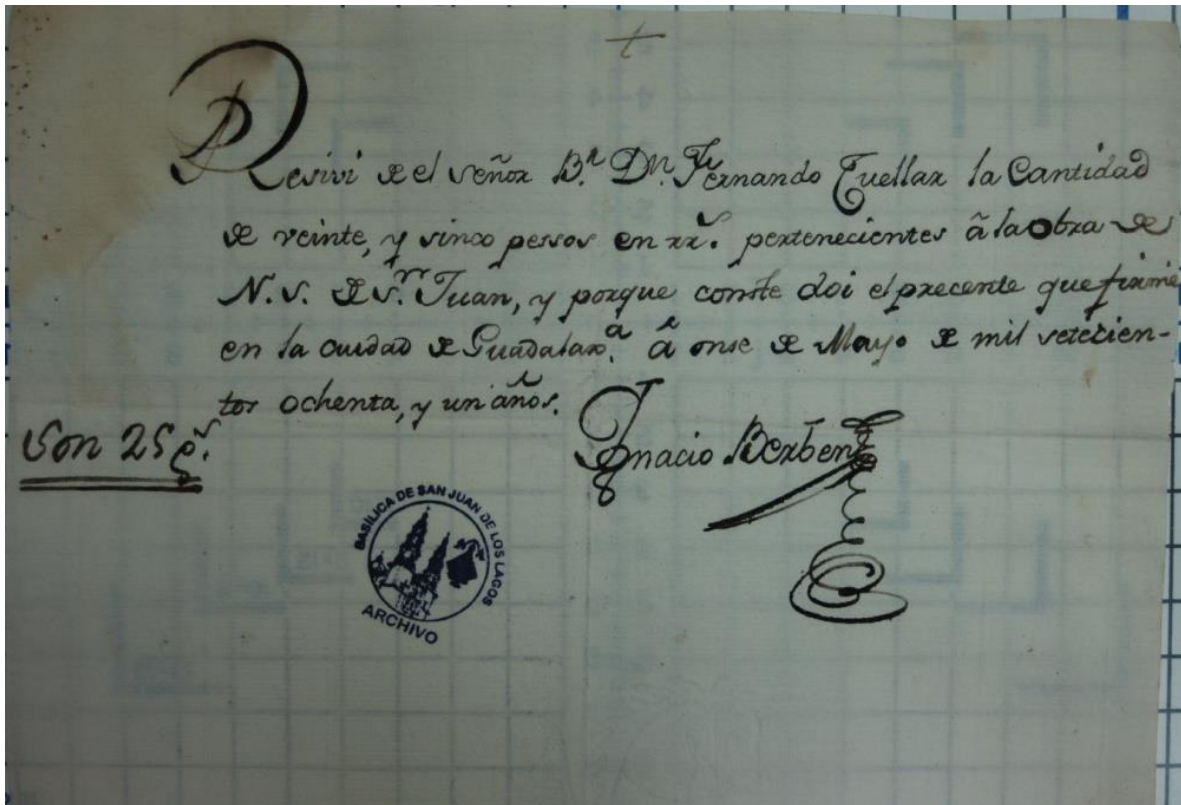 +
Resivi de el señor B.r D.n Fernando Cuellar la Cantidad
de veinte, y sinco pessos en rr.s pertenecientes â la obra de
N. S. de S.n Juan, y porque conste doi el precente que firmé
en la ciudad de Guadalax.a á onse de Mayo de mil setecien-
tos ochenta, y un años.
Son 25 p.s
Ignacio Berben
BASÍLICA DE SAN JUAN DE LOS LAGOS
ARCHIVO